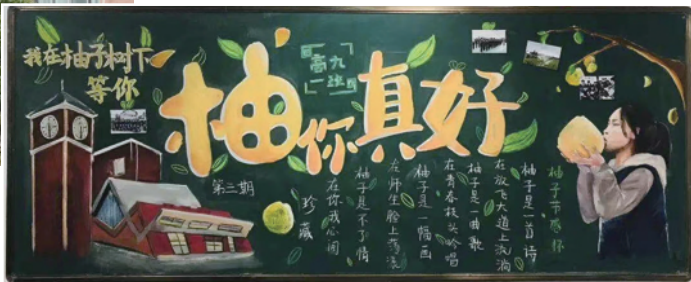 我在柚子树下
等你
柚你真好
高一
九班
第三期
柚子节感怀
柚子是一首诗
在放飞大道上流淌
柚子是一曲歌
在青春枝头吟唱
柚子是一幅画
在师生脸上荡漾
柚子是不了情
在你我心间
珍藏